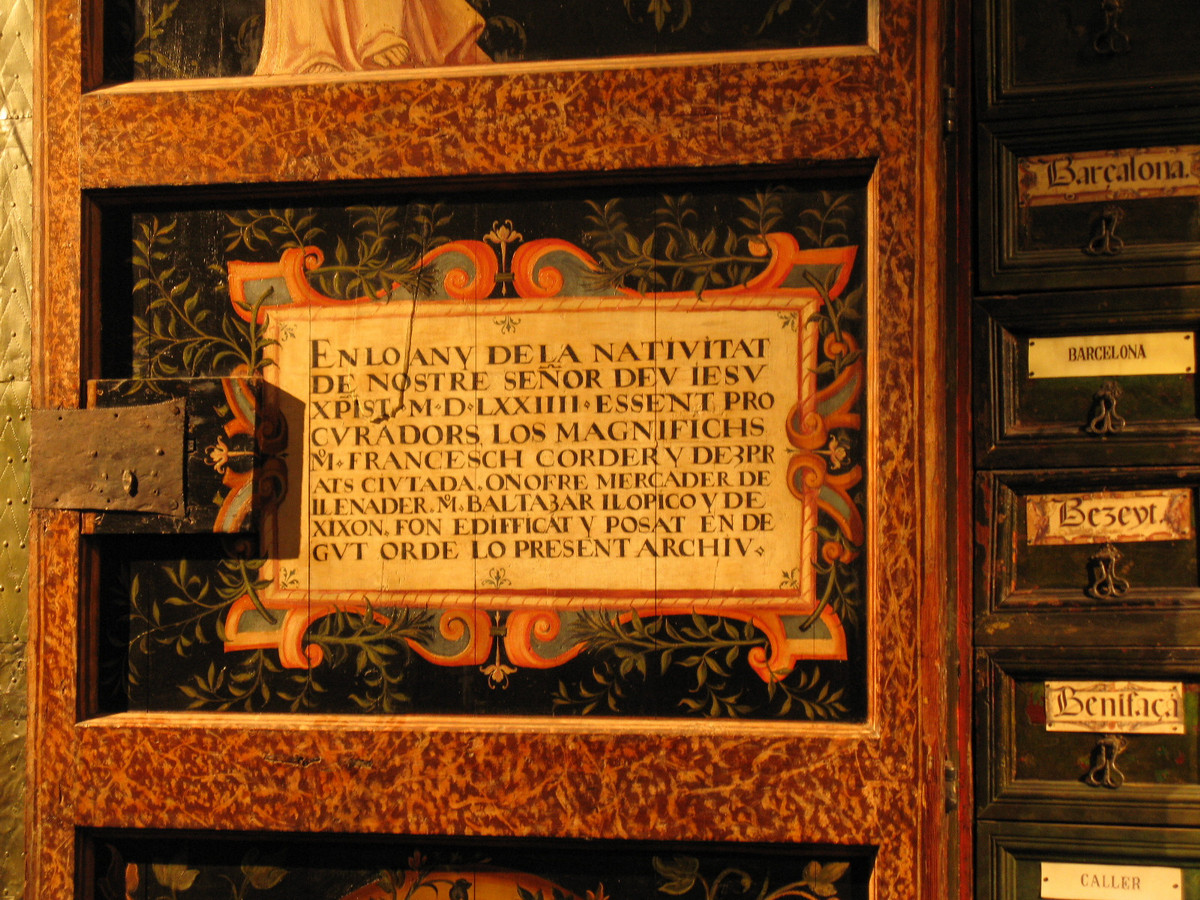 EN LO ANY DE LA NATIVITAT
DE NOSTRE SEÑOR DEV IESV
XPIST. M·D·LXXIIII·ESSENT PRO
CVRADORS LOS MAGNIFICHS
M. FRANCESCH CORDER Y DEZPR
ATS CIVTADA. ONOFRE MERCADER DE
ILENADER. M. BALTAZAR ILOPICO Y DE
XIXON. FON EDIFFICAT Y POSAT EN DE
GVT ORDE LO PRESENT ARCHIV
Barçalona.
BARCELONA
Bezeyt.
Benifaça
CALLER